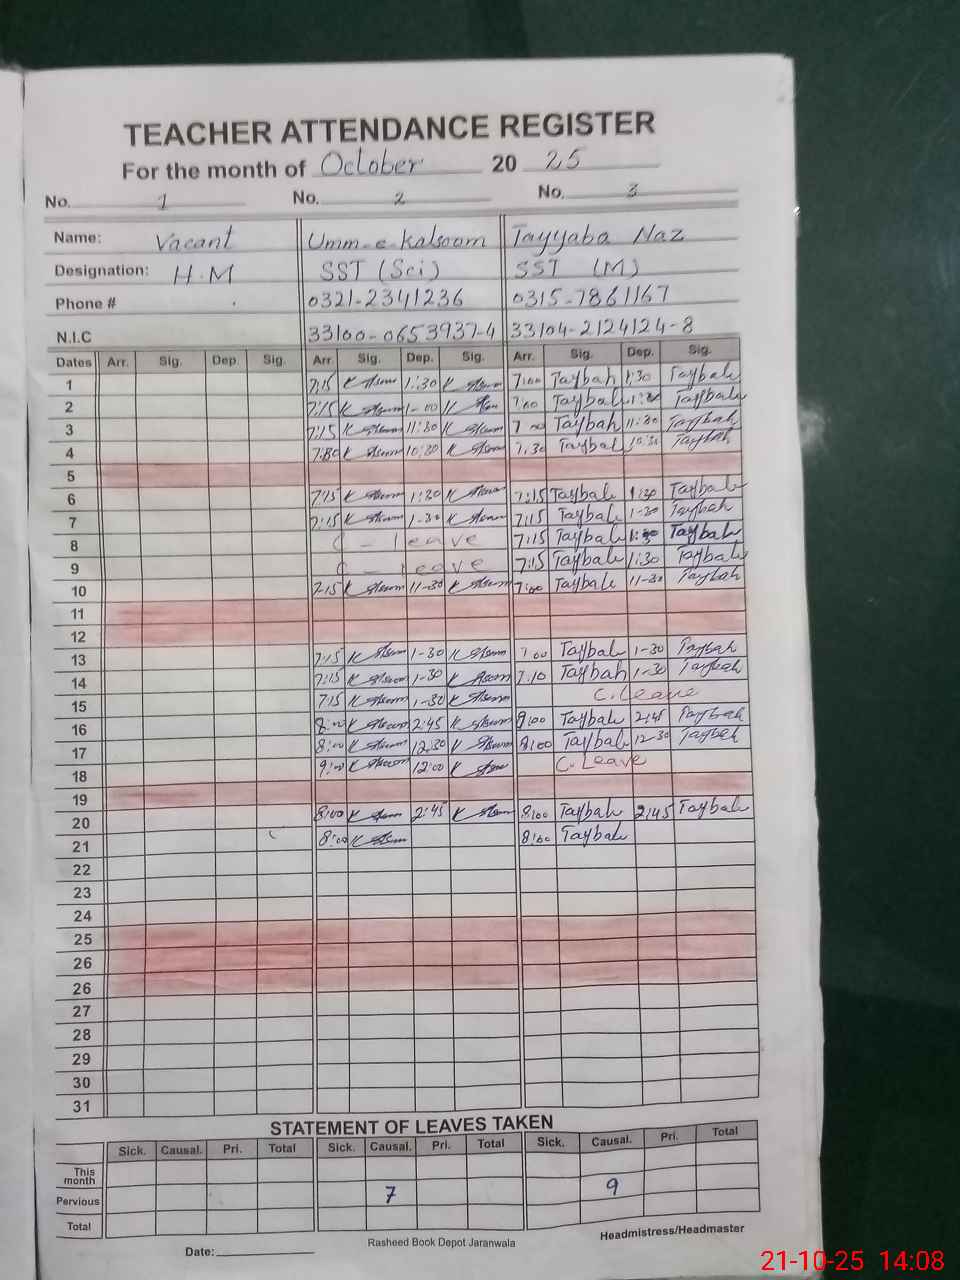 TEACHER ATTENDANCE REGISTER
For the month of October 20 25
No. 1 No. 2 No. 3
Name: Vacant Umm-e-Kalsoom Tayyaba Naz
Designation: H.M SST (Sci) SST (M)
Phone # 0321-2341236 0315-7861167
N.I.C 33100-0653937-4 33104-2124124-8
Dates Arr. Sig. Dep. Sig. Arr. Sig. Dep. Sig. Arr. Sig. Dep. Sig.
1 7:15 1:30 7:00 Taybah 1:30 Taybah
2 7:15 1-00 7:00 Taybah Taybah
3 7:15 11:30 7 00 Taybah 11:30 Taybah
4 7:30 10:30 7:30 Taybah 10:30 Taybah
5
6 7:15 1:30 7:15 Taybah 1:30 Taybah
7 7:15 1-30 7:15 Taybah 1-30 Taybah
8 C - leave 7:15 Taybah Taybah
9 C - leave 7:15 Taybah 1:30 Taybah
10 7:15 11-30 7:00 Taybah 11-30 Taybah
11
12
13 7:15 1-30 7:00 Taybah 1-30 Taybah
14 7:15 1-30 7:10 Taybah 1-30 Taybah
15 7:15 1-30 C.Leave
16 8:00 2:45 Taybah 2:45 Taybah
17 8:00 12:30 8:00 Taybah 12-30 Taybah
18 9:00 12:00 C.Leave
19
20 8:00 2:45 8:00 Taybah 2:45 Taybah
21 8:00 8:00 Taybah
22
23
24
25
26
26
27
28
29
30
31
STATEMENT OF LEAVES TAKEN
Sick. Causal. Pri. Total Sick. Causal. Pri. Total Sick. Causal. Pri. Total
This month
Pervious 7 9
Total
Date: Rasheed Book Depot Jaranwala Headmistress/Headmaster
21-10-25 14:08